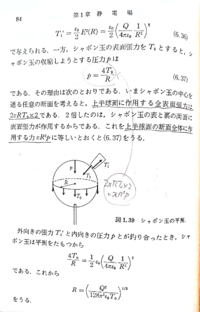 84 第1章 静 電 場
T₁' = ε₀/2 E²(R) = ε₀/2 (Q/4πε₀ 1/R²)² (6.36)
で与えられる. 一方, シャボン玉の表面張力を T₂ とすると, シャ
ボン玉の収縮しようとする圧力 p は
p = 4T₂/R (6.37)
である. その理由は次のとおりである. いまシャボン玉の中心を
通る任意の断面を考えると, 上半球面に作用する全表面張力は
2πRT₂×2 である. 2倍したのは, シャボン玉の表と裏の両面に
表面張力が作用するからである. これを上半球面の断面全体に作
用する力 πR²p に等しいとおくと (6.37) をうる.
図 1.39 シャボン玉の平衡.
外向きの張力 T₁' と内向きの圧力 p とが釣り合ったとき, シャボ
ン玉は平衡をたもつから
4T₂/R = 1/2 ε₀ (Q/4πε₀ 1/R²)²
である. これから
R = (Q²/128π²ε₀T₂)^1/3
をうる.